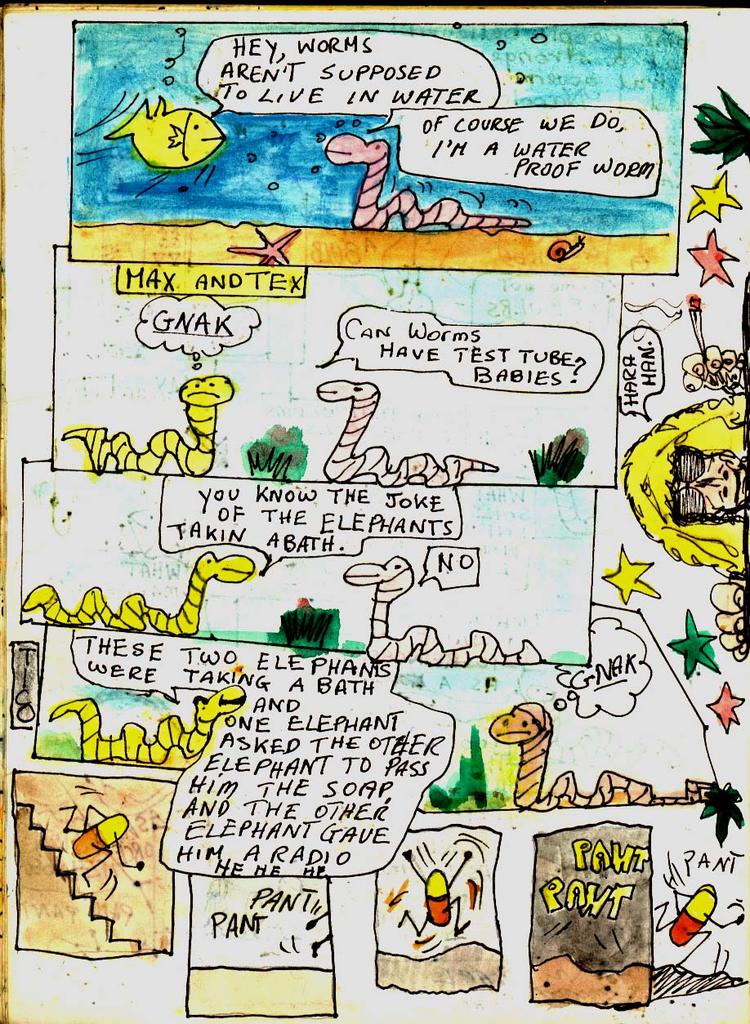 HEY, WORMS
AREN'T SUPPOSED
TO LIVE IN WATER
OF COURSE WE DO,
I'M A WATER
PROOF WORM
MAX AND TEX
GNAK
CAN WORMS
HAVE TEST TUBE
BABIES?
HARA
HAN.
YOU KNOW THE JOKE
OF THE ELEPHANTS
TAKIN A BATH.
NO
THESE TWO ELEPHANTS
WERE TAKING A BATH
AND
ONE ELEPHANT
ASKED THE OTHER
ELEPHANT TO PASS
HIM THE SOAP,
AND THE OTHER
ELEPHANT GAVE
HIM A RADIO
HE HE HE
GNAK
PANT
PANT
PANT
PANT
PANT